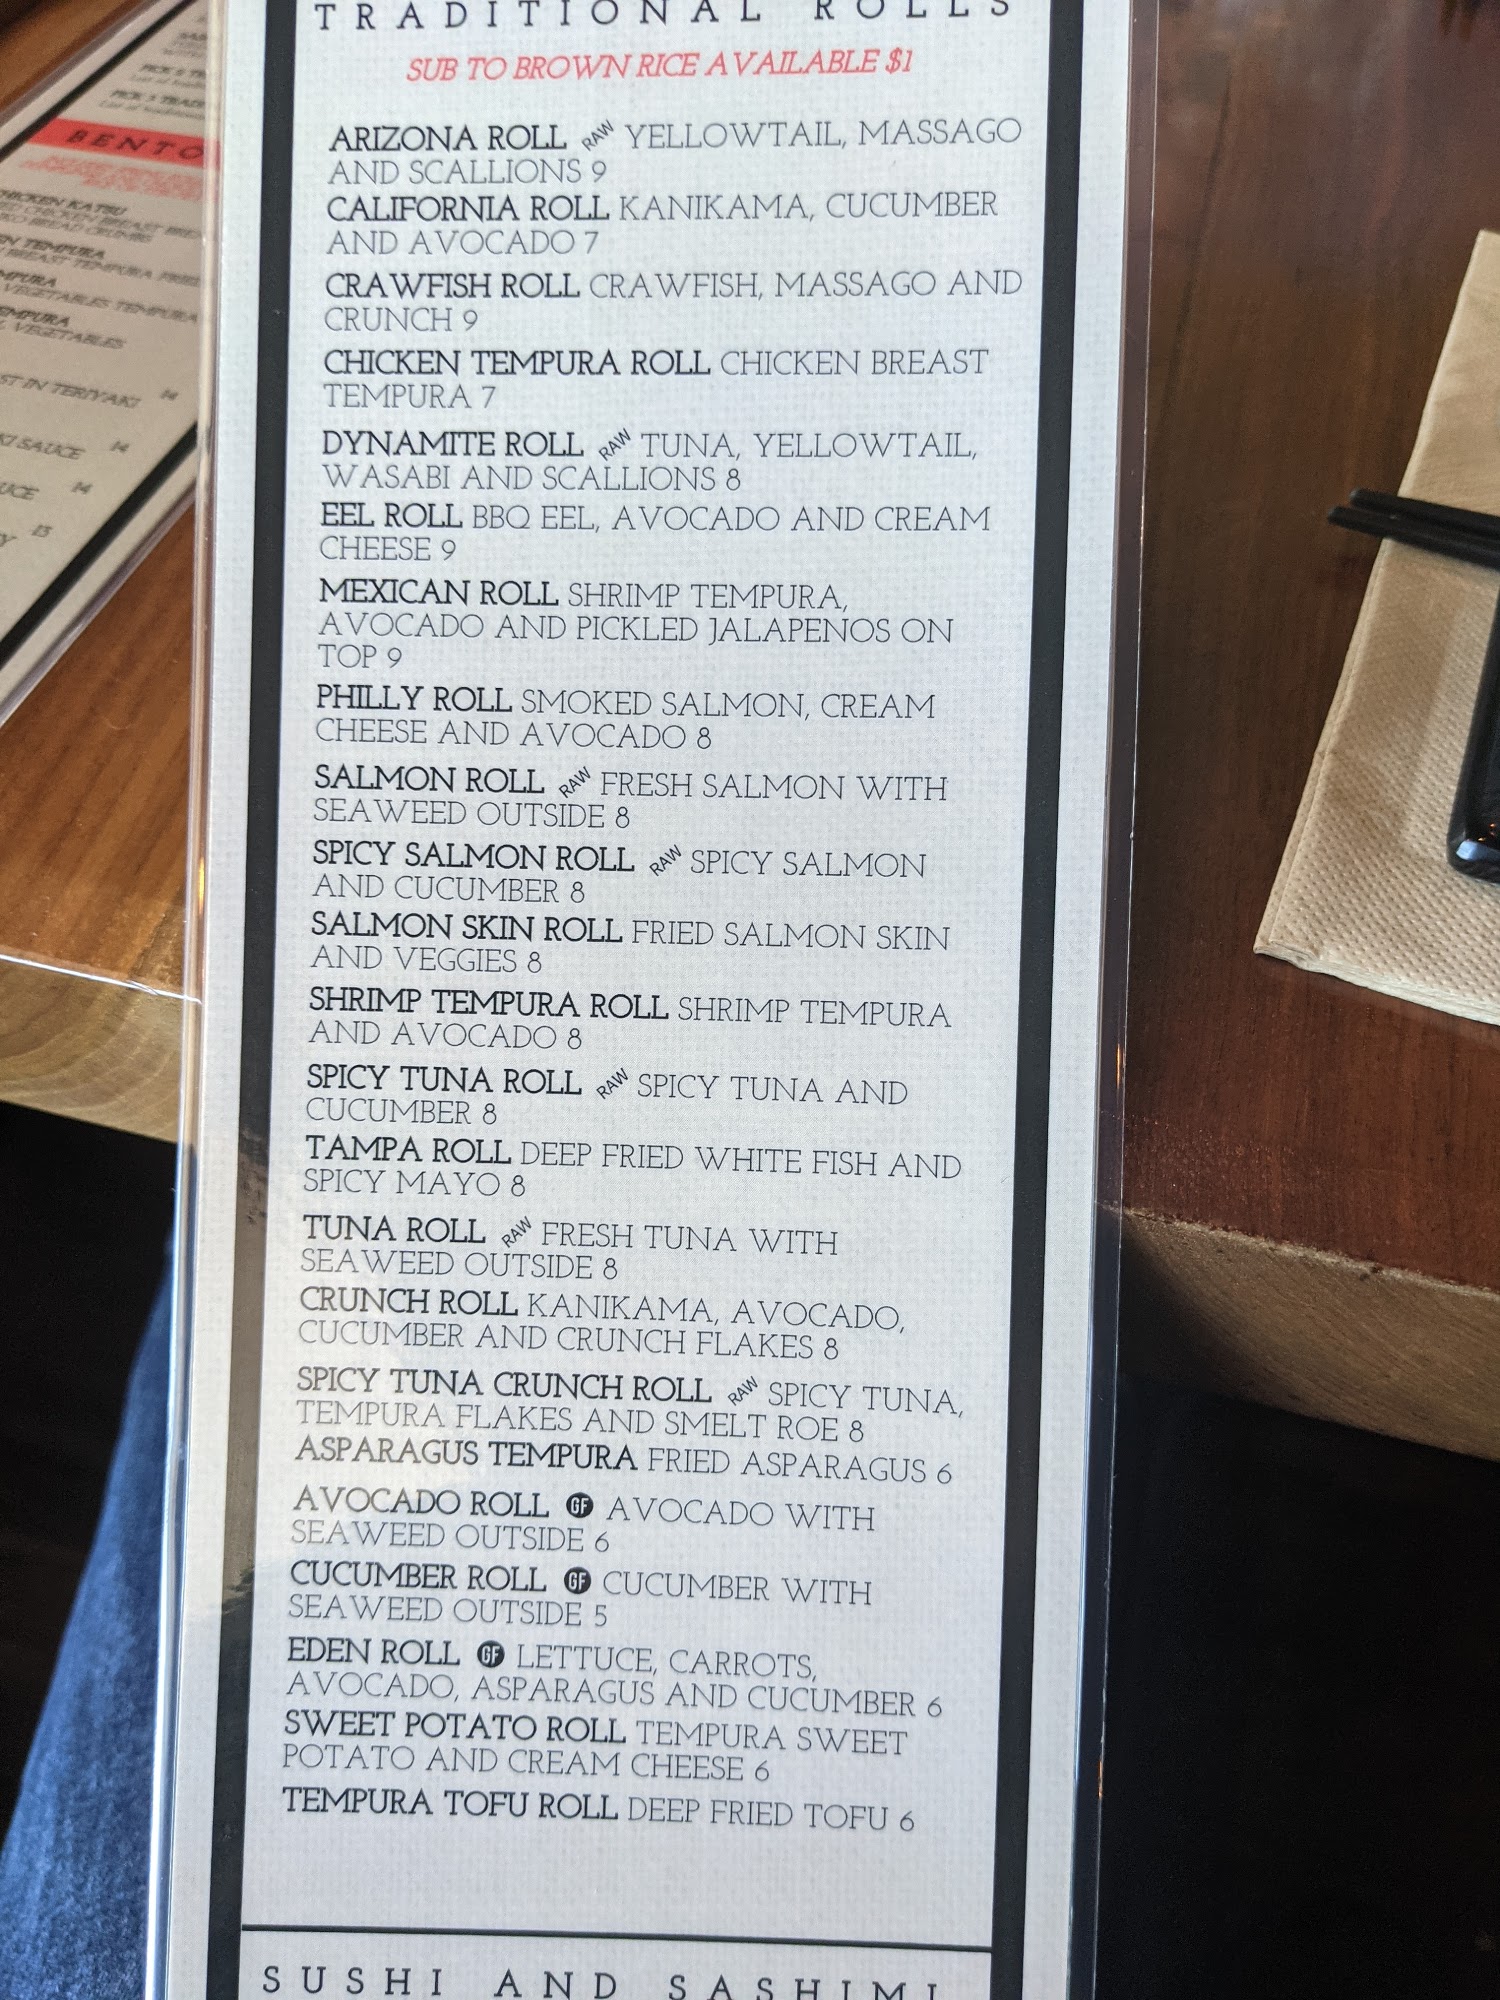 TRADITIONAL ROLLS
SUB TO BROWN RICE AVAILABLE $1
ARIZONA ROLL RAW YELLOWTAIL, MASSAGO
AND SCALLIONS 9
CALIFORNIA ROLL KANIKAMA, CUCUMBER
AND AVOCADO 7
CRAWFISH ROLL CRAWFISH, MASSAGO AND
CRUNCH 9
CHICKEN TEMPURA ROLL CHICKEN BREAST
TEMPURA 7
DYNAMITE ROLL RAW TUNA, YELLOWTAIL,
WASABI AND SCALLIONS 8
EEL ROLL BBQ EEL, AVOCADO AND CREAM
CHEESE 9
MEXICAN ROLL SHRIMP TEMPURA,
AVOCADO AND PICKLED JALAPENOS ON
TOP 9
PHILLY ROLL SMOKED SALMON, CREAM
CHEESE AND AVOCADO 8
SALMON ROLL RAW FRESH SALMON WITH
SEAWEED OUTSIDE 8
SPICY SALMON ROLL RAW SPICY SALMON
AND CUCUMBER 8
SALMON SKIN ROLL FRIED SALMON SKIN
AND VEGGIES 8
SHRIMP TEMPURA ROLL SHRIMP TEMPURA
AND AVOCADO 8
SPICY TUNA ROLL RAW SPICY TUNA AND
CUCUMBER 8
TAMPA ROLL DEEP FRIED WHITE FISH AND
SPICY MAYO 8
TUNA ROLL RAW FRESH TUNA WITH
SEAWEED OUTSIDE 8
CRUNCH ROLL KANIKAMA, AVOCADO,
CUCUMBER AND CRUNCH FLAKES 8
SPICY TUNA CRUNCH ROLL RAW SPICY TUNA,
TEMPURA FLAKES AND SMELT ROE 8
ASPARAGUS TEMPURA FRIED ASPARAGUS 6
AVOCADO ROLL GF AVOCADO WITH
SEAWEED OUTSIDE 6
CUCUMBER ROLL GF CUCUMBER WITH
SEAWEED OUTSIDE 5
EDEN ROLL GF LETTUCE, CARROTS,
AVOCADO, ASPARAGUS AND CUCUMBER 6
SWEET POTATO ROLL TEMPURA SWEET
POTATO AND CREAM CHEESE 6
TEMPURA TOFU ROLL DEEP FRIED TOFU 6
SUSHI AND SASHIMI
BENTO
CHICKEN KATSU
CHICKEN BREAST
BREAD CRUMBS
TEMPURA
BREAST TEMPURA FRIED
VEGETABLES TEMPURA
VEGETABLES
IN TERIYAKI 14
SAUCE 14
14
13